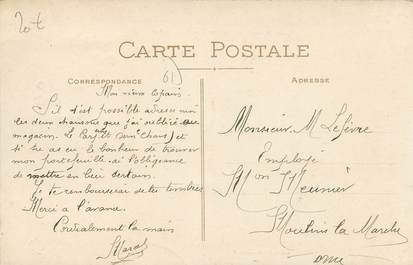 20 t
CARTE POSTALE
CORRESPONDANCE
61
ADRESSE
Mon vieux copain
S'il t'est possible adresse moi
les deux chansons que j'ai oublié au
magasin. Le et
si tu as eu le bonheur de trouver
mon portefeuille de l'obligeance
de mettre en lieu certain.
Je te rembourserai de tes timbres
Merci à l'avance
Cordialement la main
Monsieur M Lefèvre
Employé
Mon Meunier
Moulins la Marche
Orne